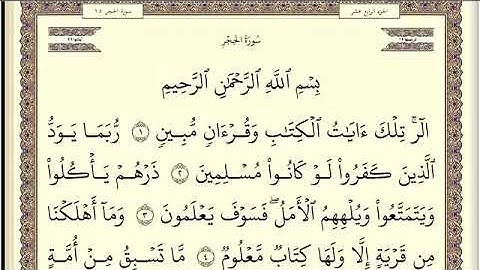 سورة الحجر ١٥
الجزء الرابع عشر
سُورَةُ الحِجْرِ
بِسْمِ ٱللَّهِ ٱلرَّحْمَٰنِ ٱلرَّحِيمِ
الٓر ۚ تِلْكَ ءَايَٰتُ ٱلْكِتَٰبِ وَقُرْءَانٍ مُّبِينٍ ١ رُّبَمَا يَوَدُّ
ٱلَّذِينَ كَفَرُوا۟ لَوْ كَانُوا۟ مُسْلِمِينَ ٢ ذَرْهُمْ يَأْكُلُوا۟
وَيَتَمَتَّعُوا۟ وَيُلْهِهِمُ ٱلْأَمَلُ ۖ فَسَوْفَ يَعْلَمُونَ ٣ وَمَآ أَهْلَكْنَا
مِن قَرْيَةٍ إِلَّا وَلَهَا كِتَابٌ مَّعْلُومٌ ٤ مَّا تَسْبِقُ مِنْ أُمَّةٍ